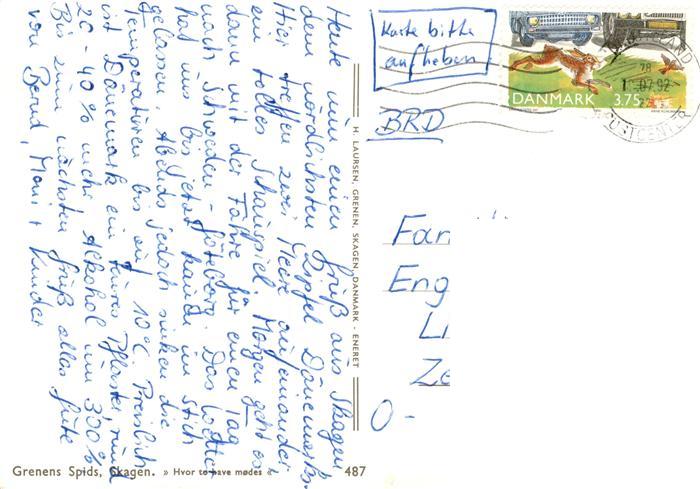 Heute nun einen Gruß aus Skagen
dem nördlichsten Zipfel Dänemarks.
Hier treffen zwei Meere aufeinander
ein tolles Schauspiel. Morgen geht es
dann mit der Fähre für einen Tag
nach Schweden - Göteborg. Das Wetter
hat uns bis jetzt kaum im Stich
gelassen, Abends jedoch sinken die
Temperaturen bis auf 10°C. Preislich
ist Dänemark ein teures Pflaster, rund
20 - 40% mehr Alkohol um 300%
Bis zum nächsten Gruß alles Gute
von Bernd, Moni +
Kinder
H. LAURSEN, GRENEN, SKAGEN, DANMARK - ENERET
Karte bitte
aufheben
BRD
DANMARK 3.75
28
1 .07.92
POSTCENTER
Fam
Eng
Li
Ze
O -
Grenens Spids, Skagen. » Hvor to have mødes « 487